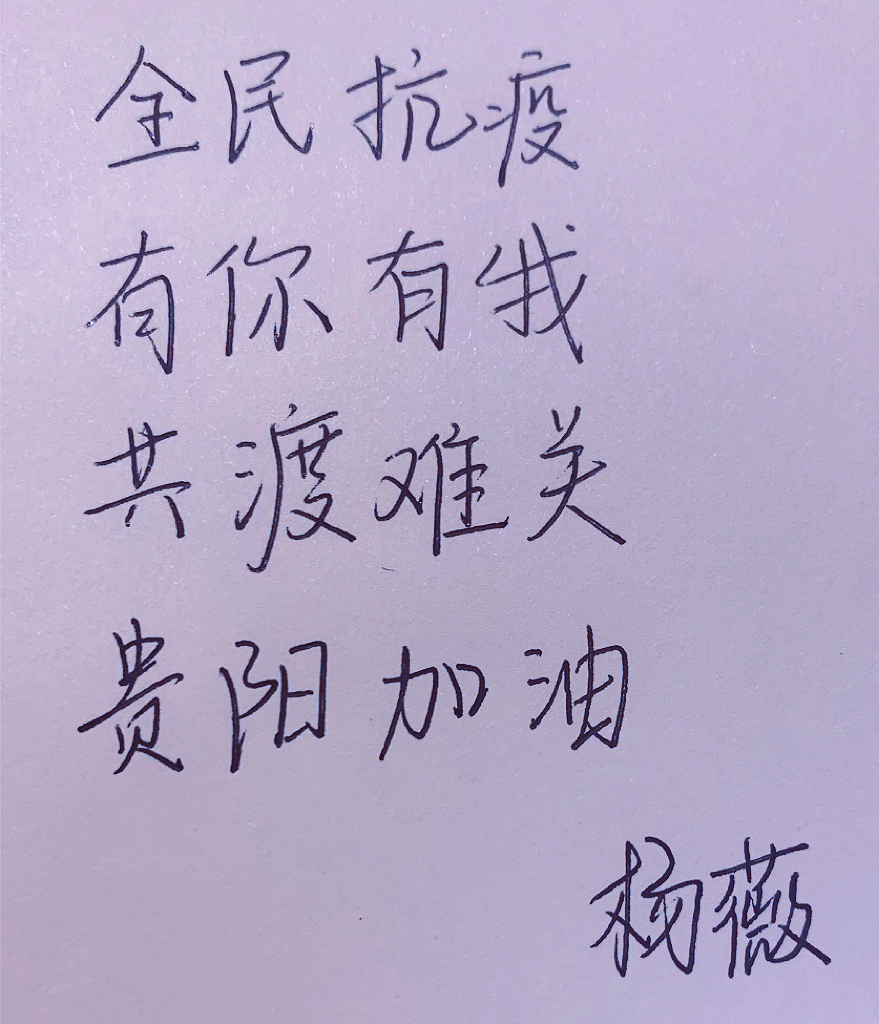 全民抗疫
有你有我
共渡难关
贵阳加油
杨薇